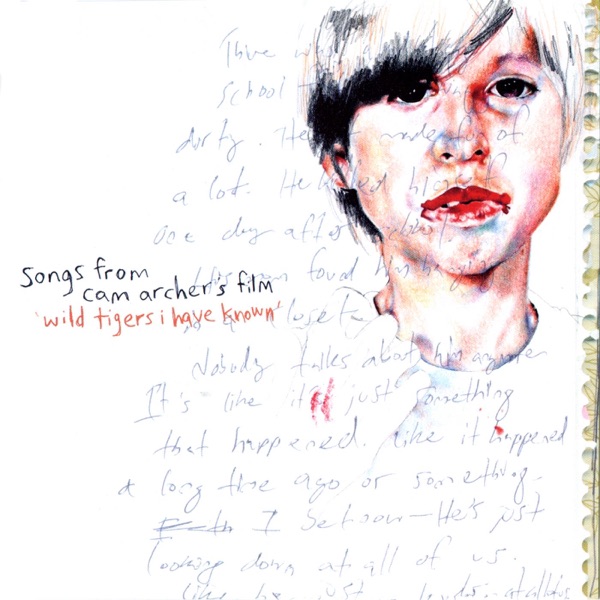 There was a
school
durty. He made fun of
a lot. He killed himself
one day after school.
His mom found him hanging
closet
Nobody talks about him anymore
It's like it just something
that happened. Like it happened
a long time ago or something.
I
He's just
looking down at all of us.
like he just
songs from
cam archer's film
'wild tigers i have known'